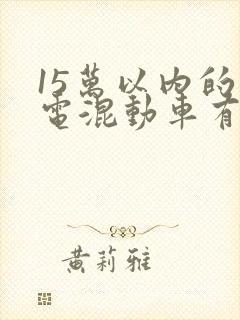 15萬以内的
電混動車有
黄莉雅